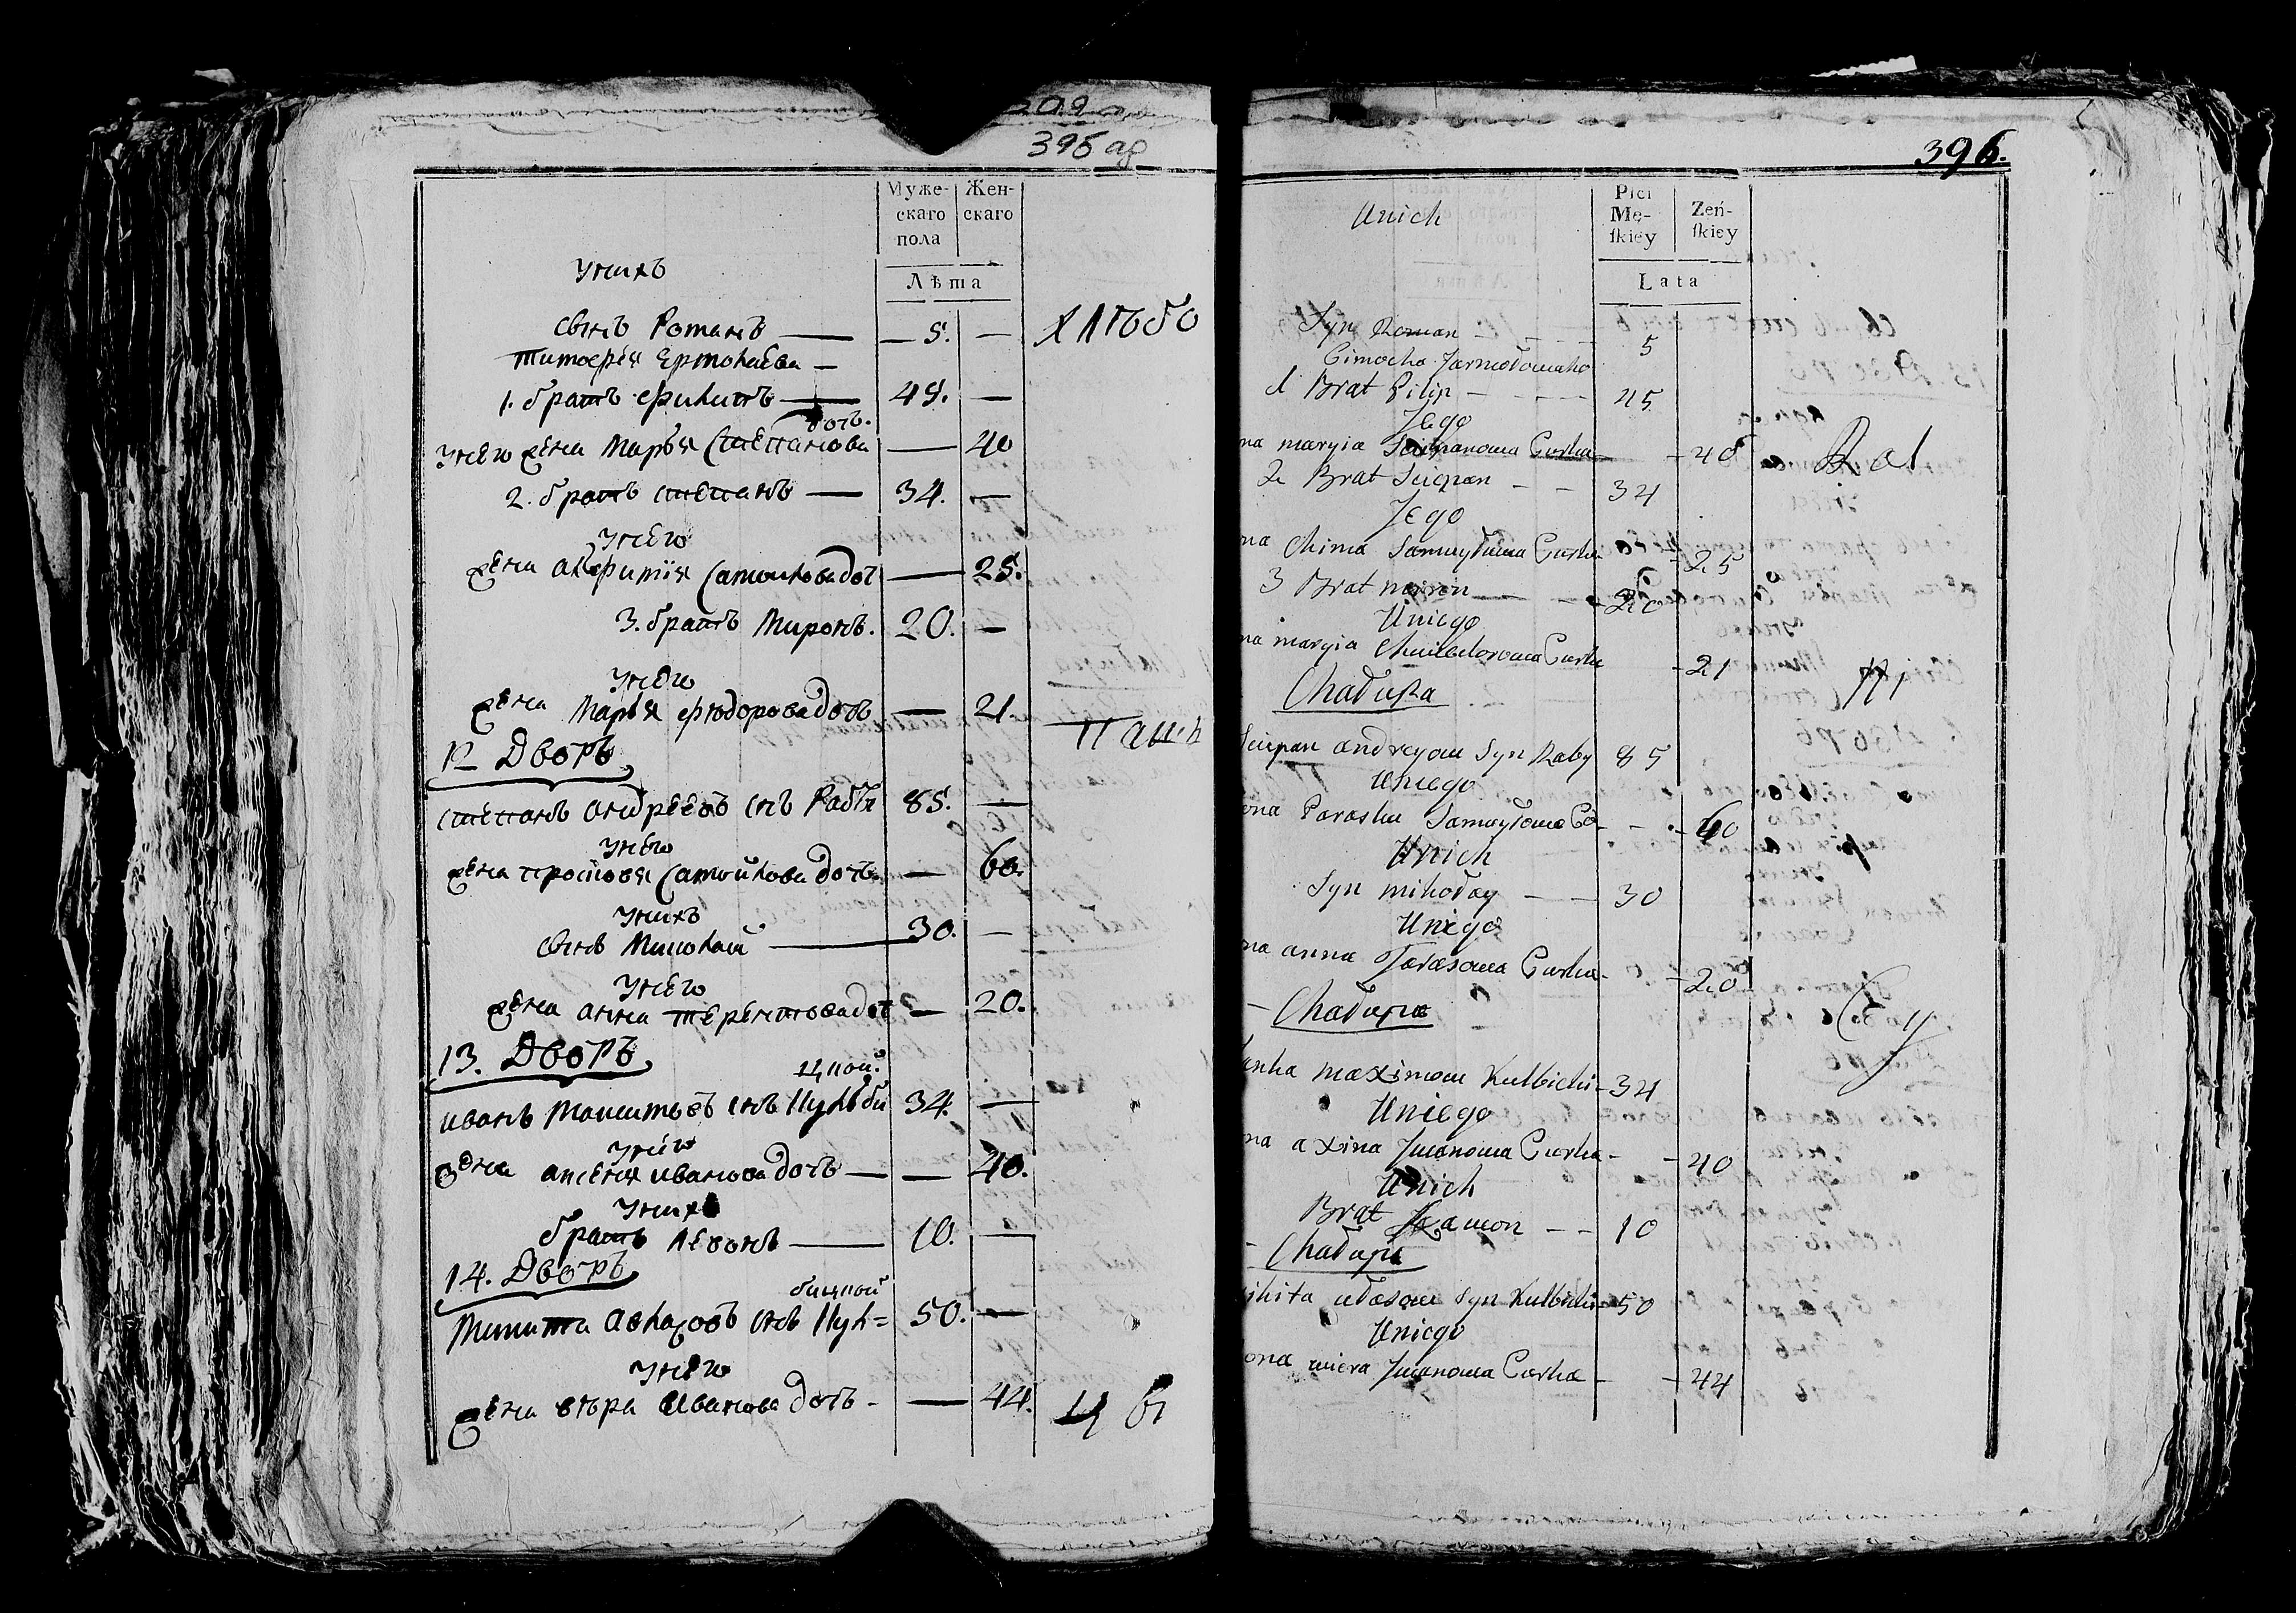 209
395 об
Муже-
скаго
пола
Жен-
скаго
Лѣта
Унихъ
Сынъ Романъ — — 5. —
Тимофѣя Ермолаева —
1. братъ Филипъ — 45. —
Унего жена Марья Степанова дочь. — 40
2. братъ Степанъ — 34. —
Унего
жена Самойлова доч — 25.
3. братъ Миронъ. 20. —
Унего
жена Марья Федорова дочь — 21.
12 Дворъ
Степанъ Андреевъ снъ 85. —
Унего
жена Просковя Самойлова дочь — 60.
Унихъ
Сынъ Миколай — 30. —
Унего
жена Анна Терентова доч — 20.
13. Дворъ
цкой.
Иванъ Максимовъ снъ Кульби 34. —
Унего
жена Аксеня Иванова дочь — — 40.
Унихъ
братъ Левонъ — 10. —
14. Дворъ
бицкой
Микита снъ Кул= 50. —
Унего
жена Вѣра Иванова дочь - — 44.
Хлѣбо
Паши
цы
396.
Unich
Płci
Mę-
ſkiey
Żeń-
ſkiey
Lata
Syn Roman - - - 5
Cimocha Jarmołowaho
1 Brat Filip - - - - 45
Jego
na maryia Sciepanowa Curka - 40
2 Brat Sciepan - - 34
Jego
na Chima Samuyłowa Curka - 25
3 Brat miron - - 20
Uniego
na maryia Curka - 21
Chałupa
Sciepan andreyow Syn Raby 85
Uniego
ona Paraska Samuyłowa Co - - 60
Unich
Syn mikołay - - 30
Uniego
na anna Tarasowa Curka - - 20
Chałupa
anka maximow Kulbicki - 34
Uniego
na axina Iwanowa Curka - - 40
Unich
Brat - - 10
Chałupa
ikita Syn Kulbicki - 50
Uniego
ona wiera Iwanowa Curka - - 44
Rol
ni
cy